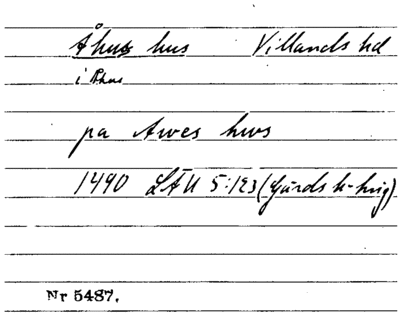 Åhus hus Villands hd
i Åhus
pa Awes hws
1490 LÄU 5:123 (Gärds h-
Nr 5487.